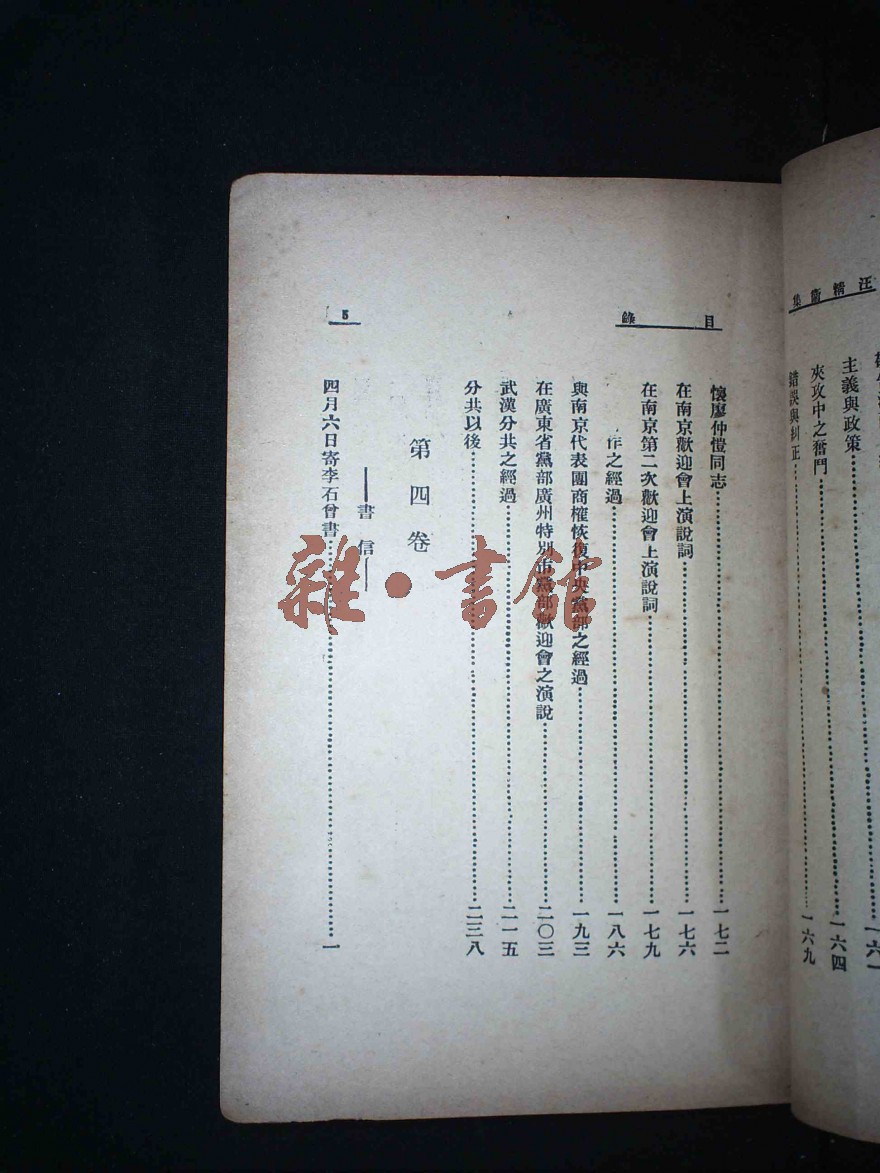 汪精衛集
主義與政策……一六四
夾攻中之奮鬥……一六九
錯誤與糾正
目錄
5
懷廖仲愷同志……一七二
在南京歡迎會上演說詞……一七六
在南京第二次歡迎會上演說詞……一七九
作之經過……一八六
與南京代表團商榷恢復中央黨部之經過……一九三
在廣東省黨部廣州特別市黨部歡迎會之演說……二〇三
武漢分共之經過……二一五
分共以後……二三八
第四卷
——書信——
四月六日寄李石曾書……一
雜·書館